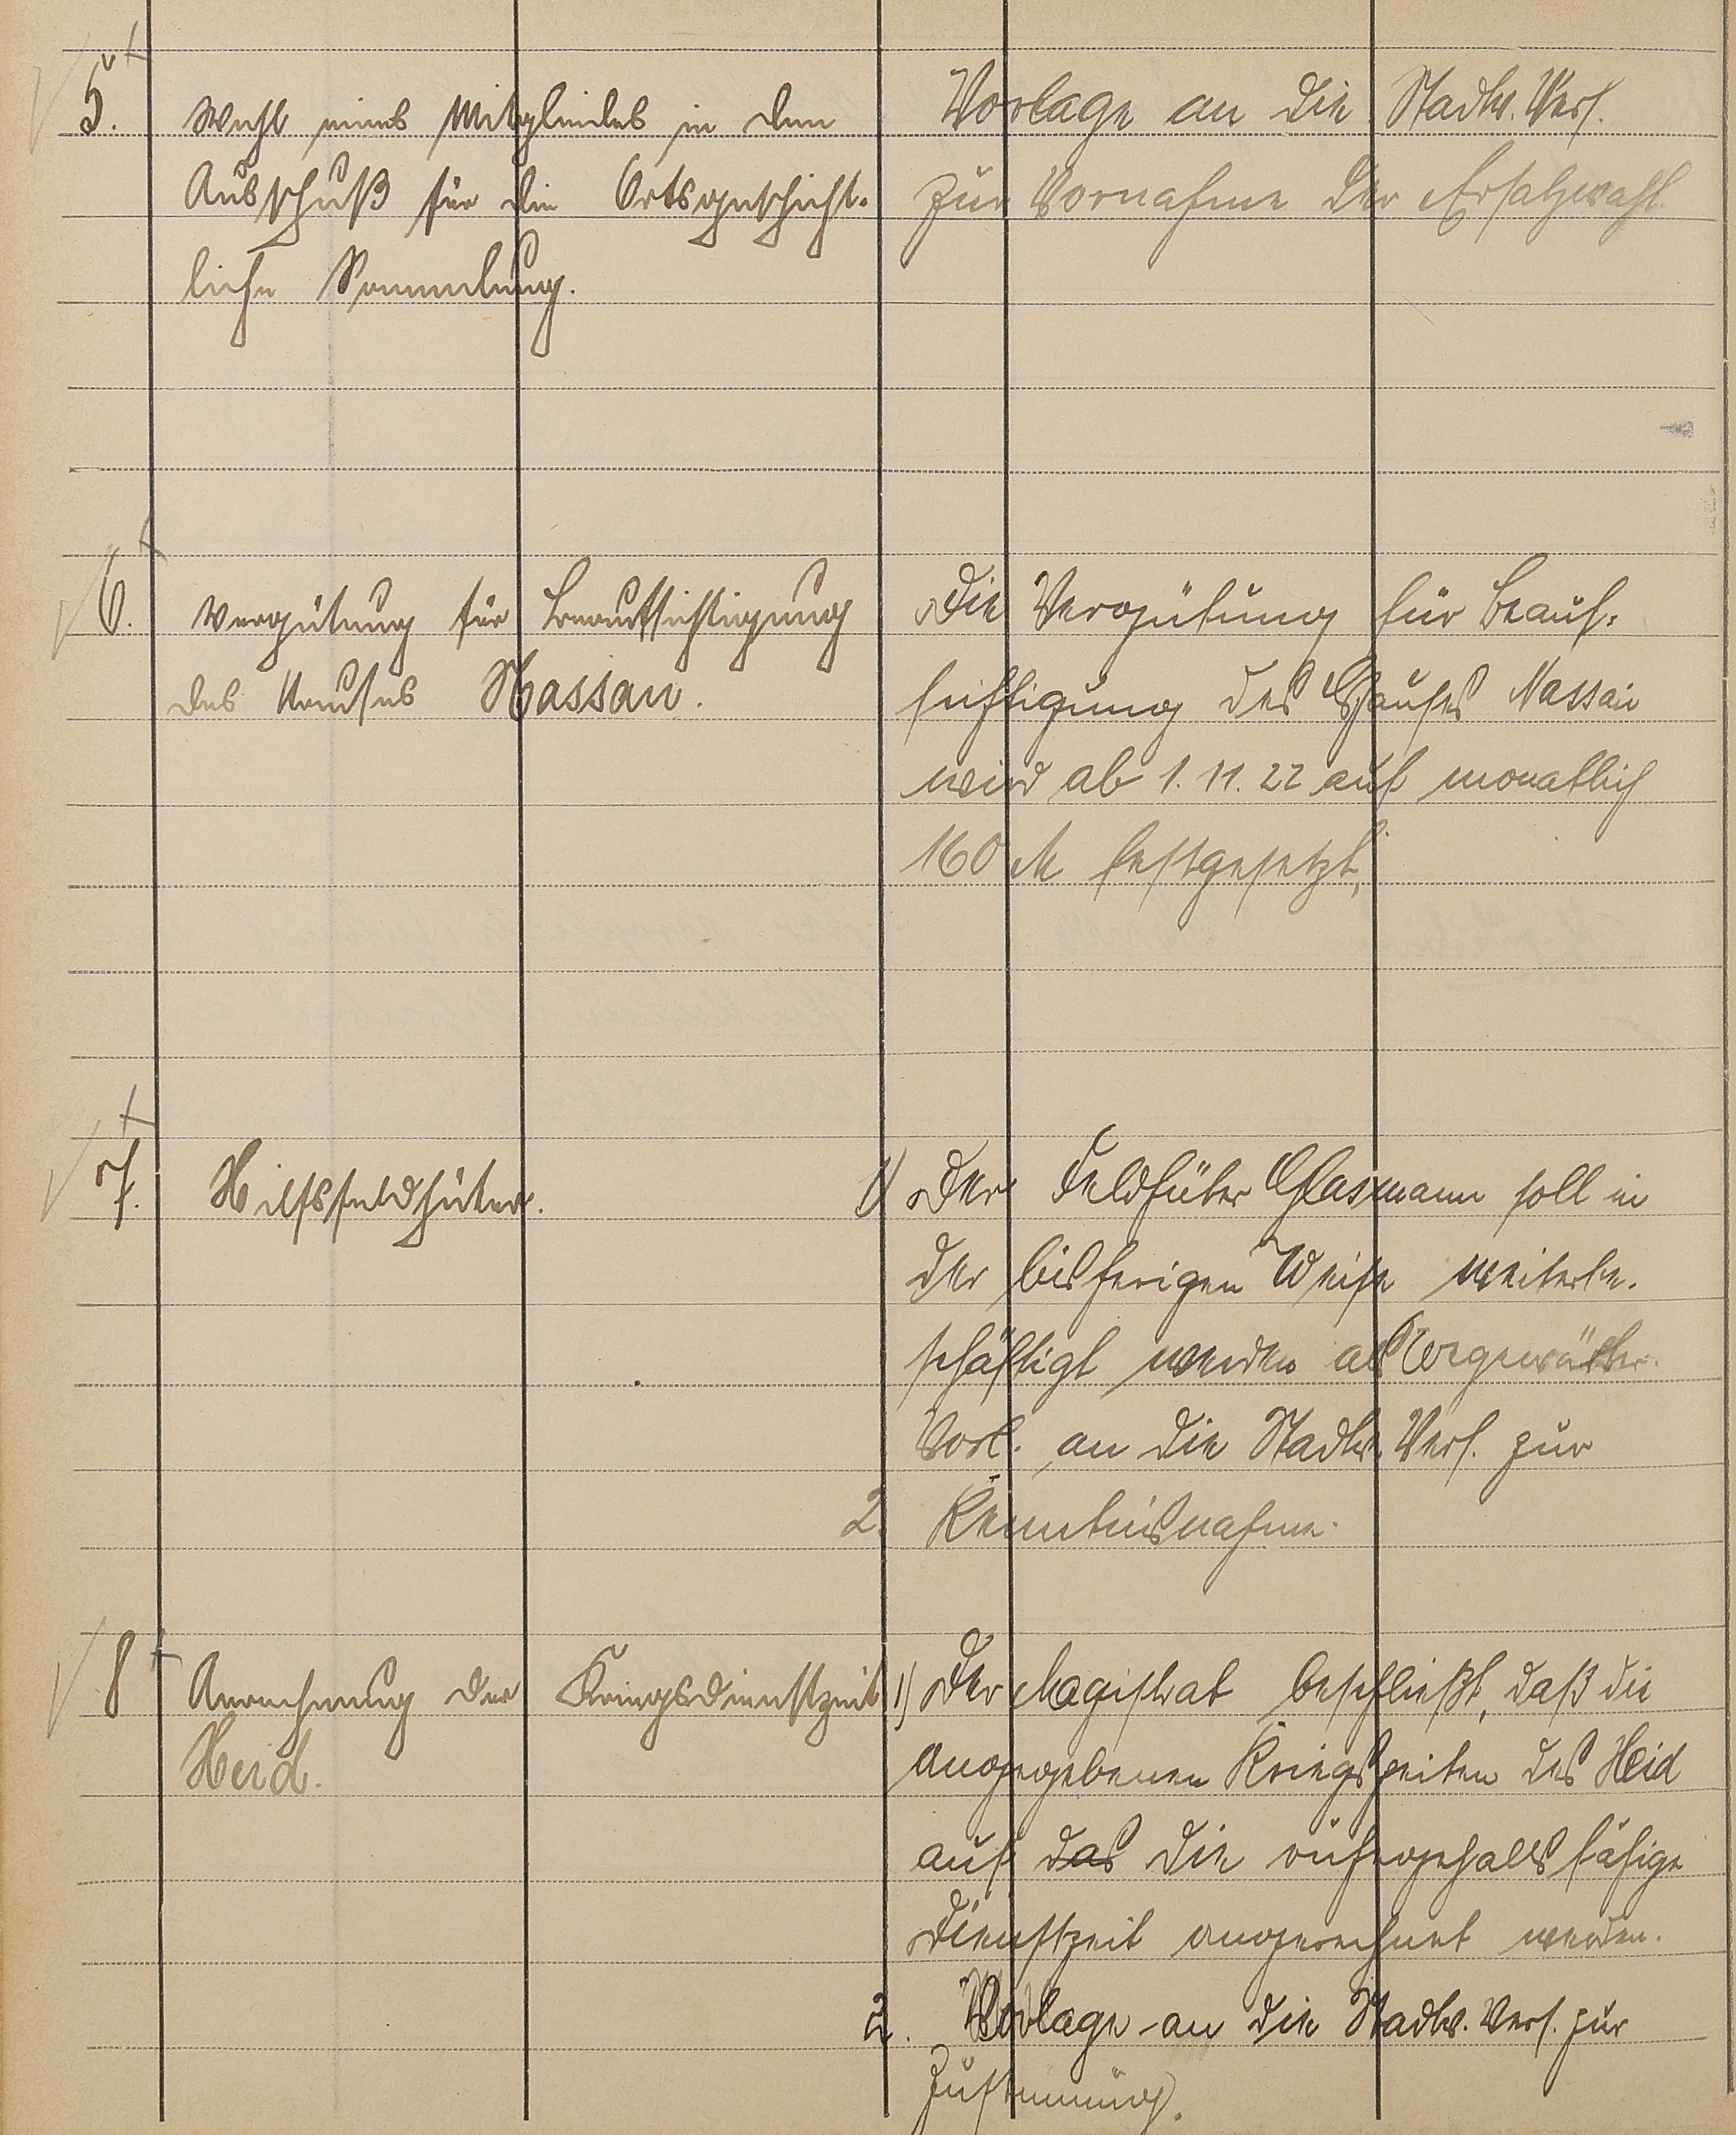 5.
Wahl eines Mitgliedes in den
Ausschuß für die Ortsgeschicht-
liche Sammlung.
Vorlage an die Stadtv. Vers.
zur Vornahme der Ersatzwahl.
6.
Vergütung für Beaufsichtigung
des Hauses Nassau.
Die Vergütung für Beauf-
sichtigung des Hauses Nassau
wird ab 1. 11. 22 auf monatlich
160 M festgesetzt.
7.
Hilfsfeldhüter.
1) Der Feldhüter Glasmann soll in
der bisherigen Weise weiterbe-
schäftigt werden als
Vorl. an die Stadtv. Vers. zur
2. Kenntnisnahme.
8
Anrechnung der Kriegsdienstzeit
Heid.
1) Der Magistrat beschließt, daß die
angegebenen Kriegszeiten des Heid
auf das die ruhegehaltsfähige
Dienstzeit angerechnet werden.
2. Vorlage an die Stadtv. Vers. zur
Zustimmung.